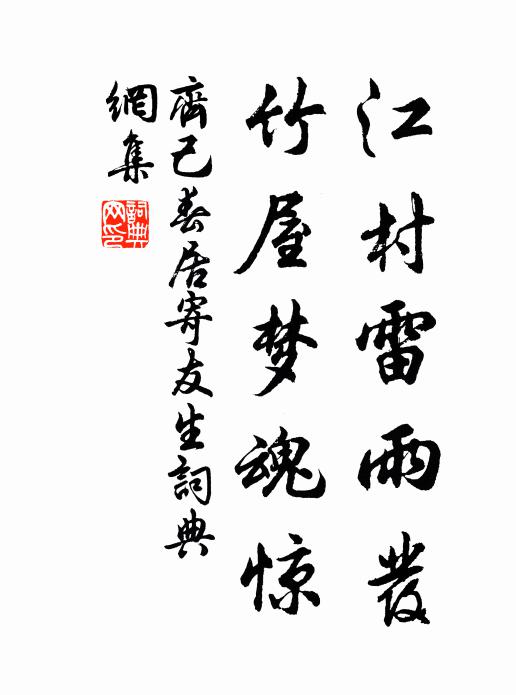 江村雷雨發
竹屋梦魂惊
齊己春居寄友生詞典
網集
詞典網印